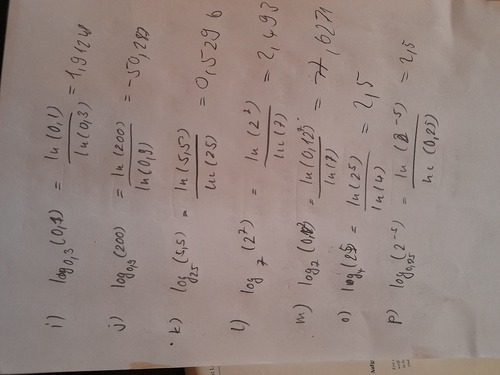 i) log0,3 (0,1) = ln(0,1) / ln(0,3) = 1,9124
j) log0,9 (200) = ln(200) / ln(0,9) = -50,28
k) log25 (5,5) = ln(5,5) / ln(25) = 0,5296
l) log7 (2^7) = ln(2^7) / ln(7) = 2,493
m) log7 = ln / ln(7) = ,6271
o) log4 (25) = ln(25) / ln(4) = 2,5
p) log0,25 (2^-5) = ln(2^-5) / ln(0,25) = 2,5